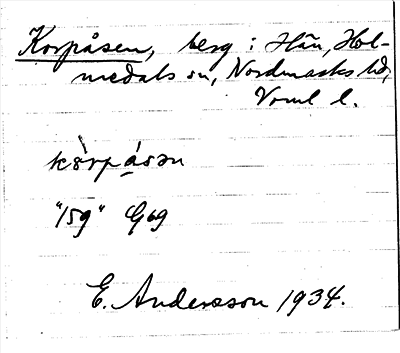 Korpåsen, berg i Hän, Hol-
medals sn, Nordmarks hd,
Vrml l.
kòrpåsən
"159" G69
E. Andersson 1934.